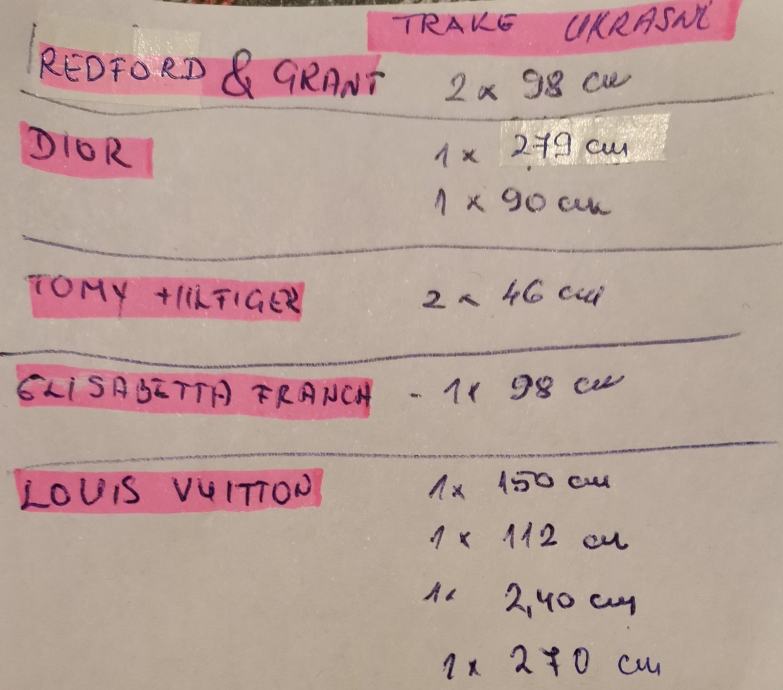 TRAKE UKRASNE
REDFORD & GRANT 2 x 98 cm
DIOR 1 x 279 cm
1 x 90 cm
TOMY HILFIGER 2 x 46 cm
ELISABETTA FRANCH - 1x 98 cm
LOUIS VUITTON 1x 150 cm
1 x 112 cm
1x 2,40 cm
1x 270 cm